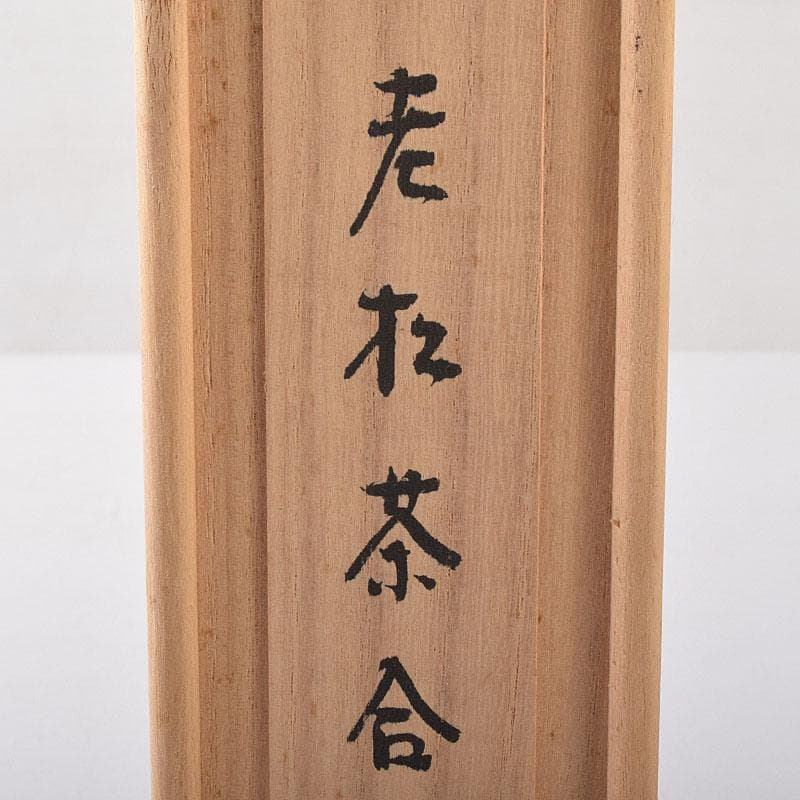 老松茶合